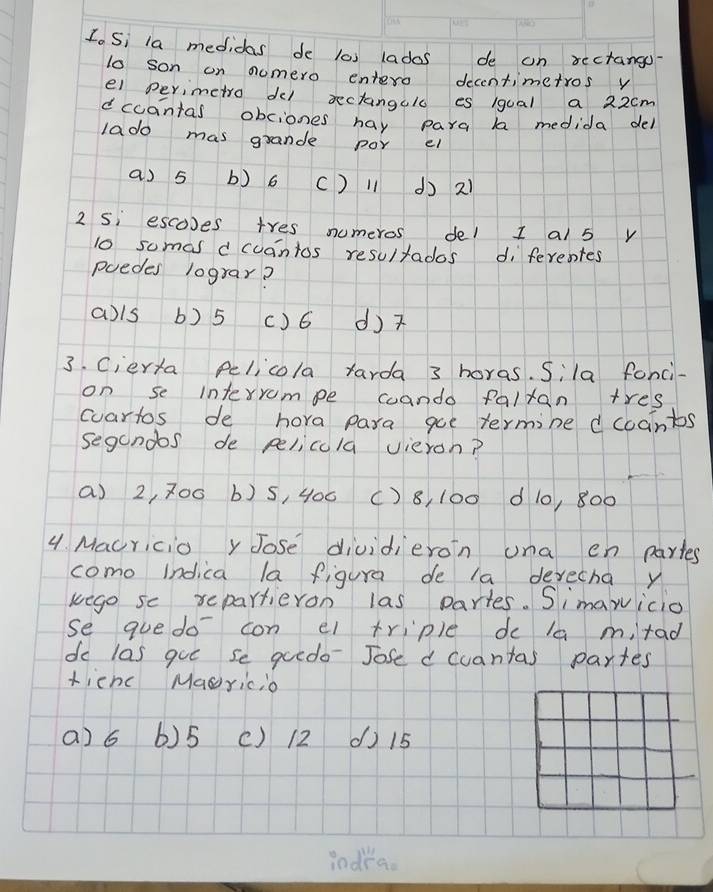 DIA MES AÑO
1. Si la medidas de los lados de un rectangu-
lo son un numero entero decentimetros y
el perimetro del rectangulo es igual a 22cm
d cuántas obciones hay para la medida del
lado mas grande por el
a) 5 b) 6 c) 11 d) 21
2 Si escojes tres numeros del 1 al 5 y
lo sumas d cuántos resultados diferentes
puedes lograr?
a) 15 b) 5 c) 6 d) 7
3. Cierta pelicula tarda 3 horas. Si la funci-
on se interrumpe cuando faltan tres
cuartos de hora para que termine d cuantos
segundos de pelicula vieron?
a) 2,700 b) 5,400 c) 8,100 d 10,800
4. Mauricio y José dividierón una en partes
como indica la figura de la derecha y
luego se repartieron las partes. Si mauricio
se quedó con el triple de la mitad
de las que se quedó Jose d cuantas partes
tiene Mauricio
a) 6 b) 5 c) 12 d) 15
indra